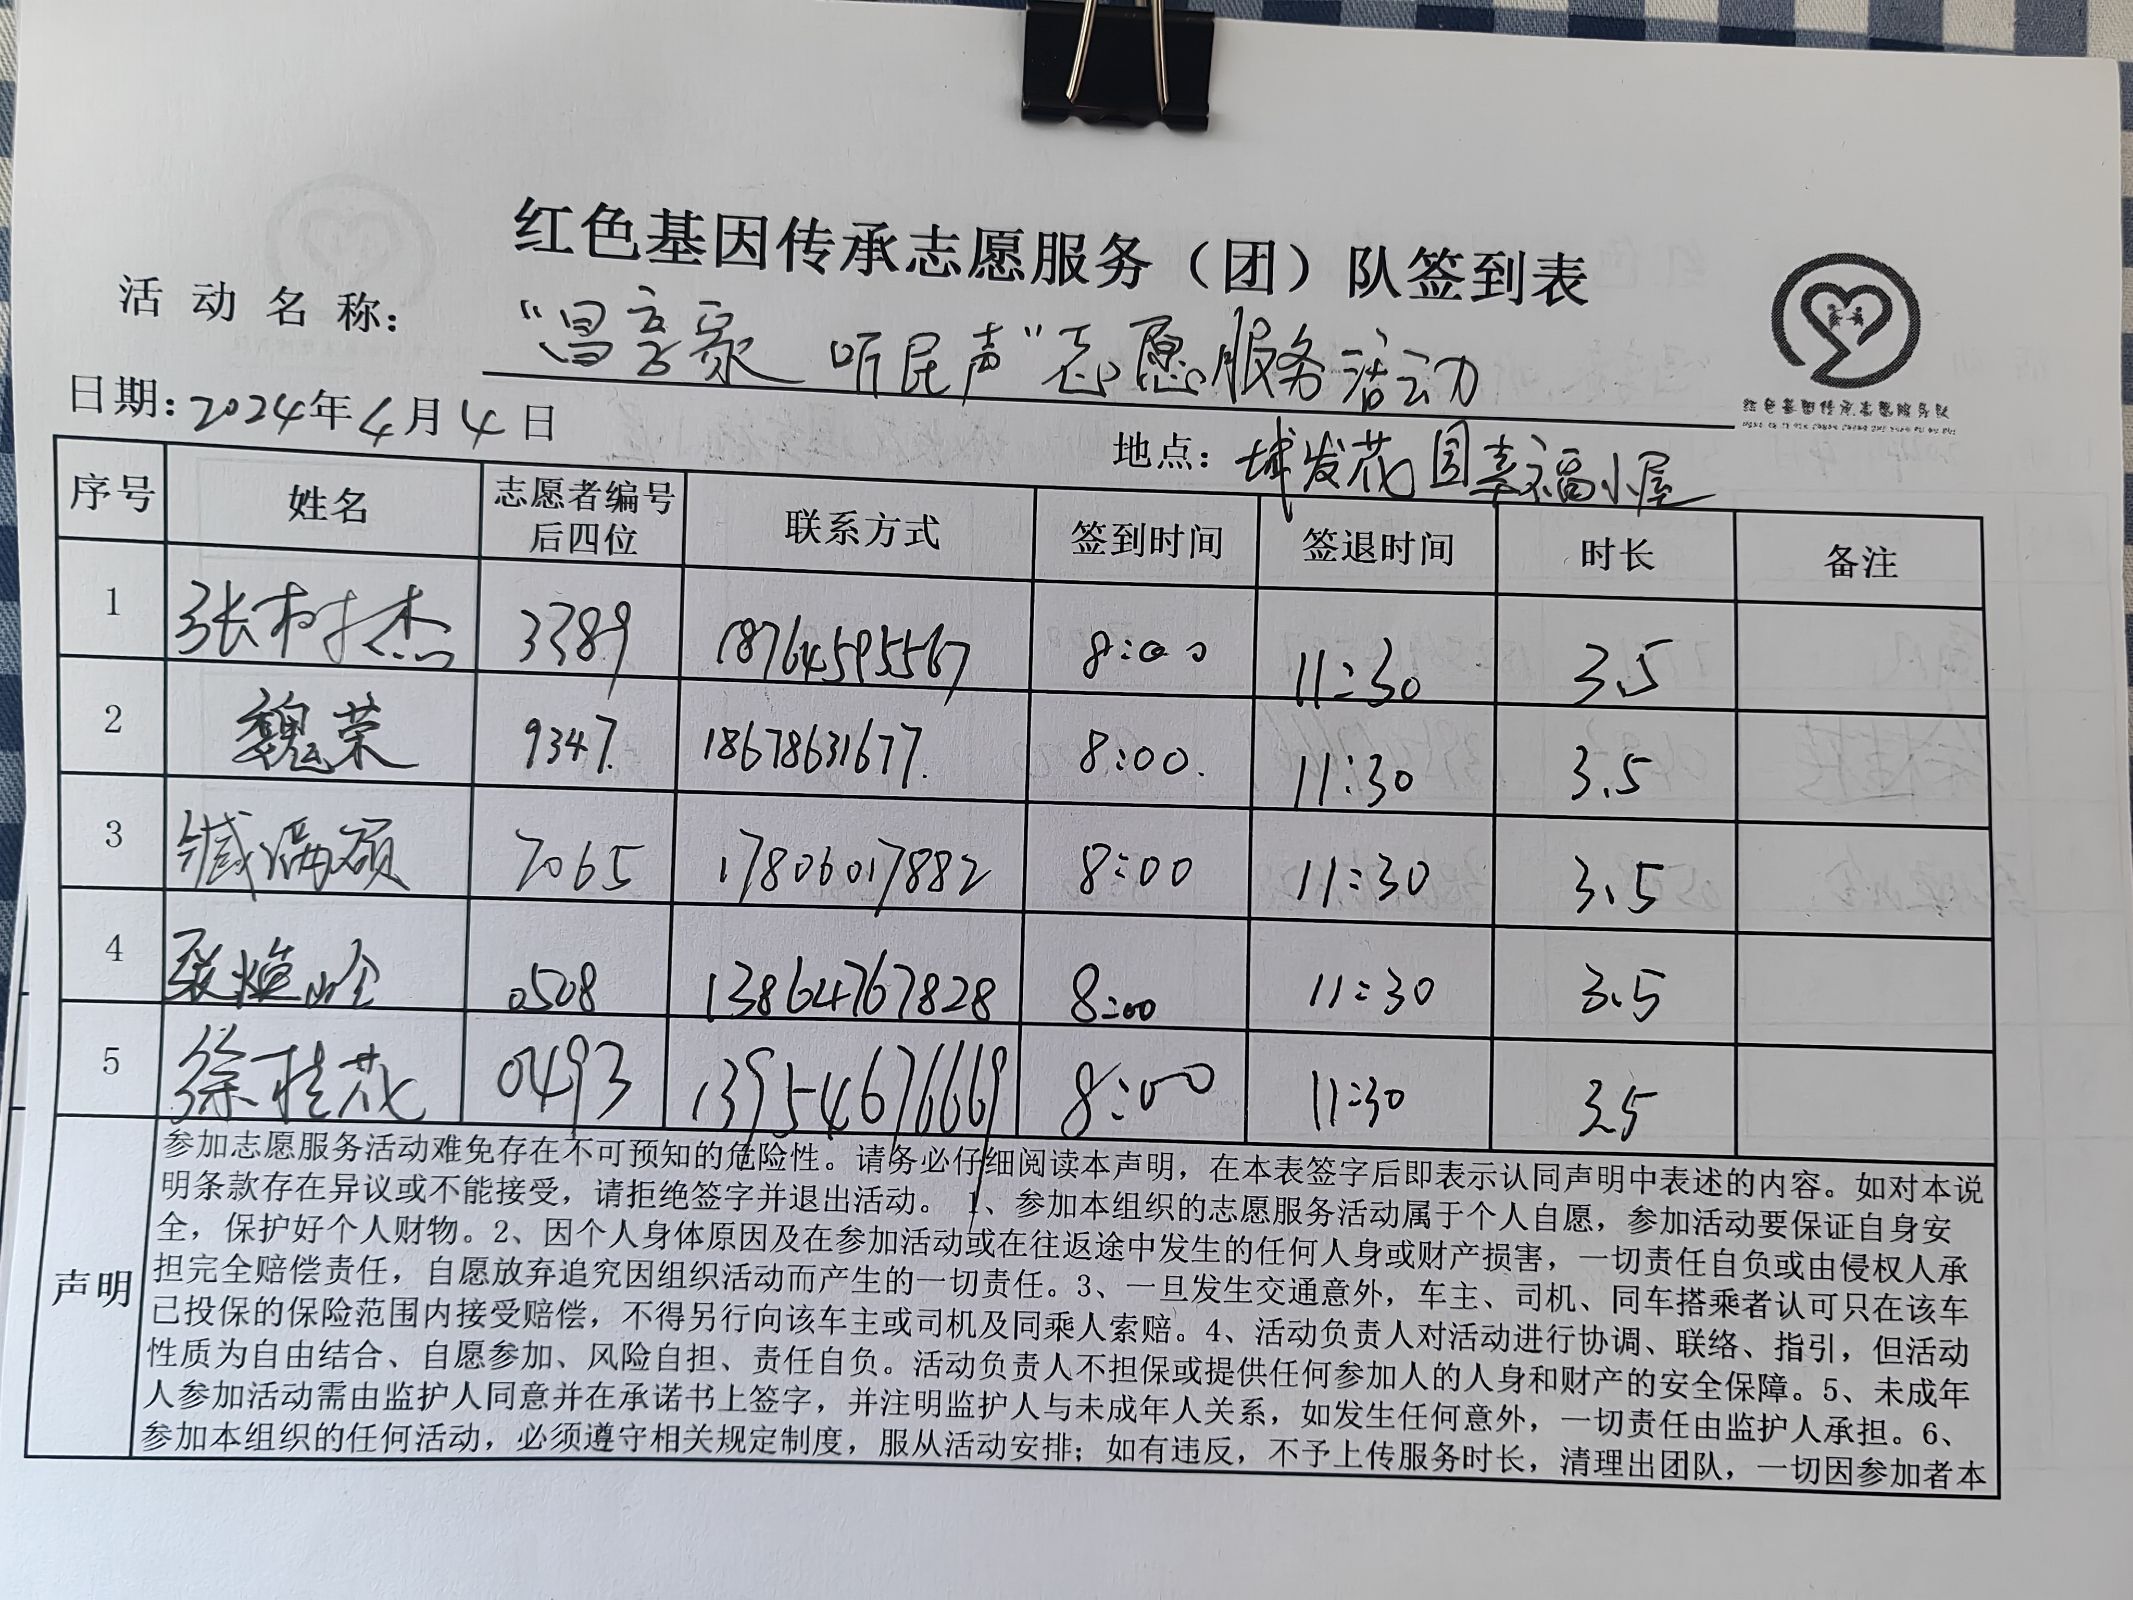 红色基因传承志愿服务（团）队签到表
活动名称：“昌言永 听民声”志愿服务活动
红色基因传承志愿服务队
日期：2024年4月4日 地点：城发花园幸福小屋
序号 姓名 志愿者编号后四位 联系方式 签到时间 签退时间 时长 备注
1 张树杰 3389 18764595567 8:00 11:30 3.5
2 魏荣 9347. 18678631677. 8:00. 11:30 3.5
3 7065 17806017882 8:00 11:30 3.5
4 0508 13864767828 8:00 11:30 3.5
5 徐桂花 0493 13954676669 8:00 11:30 3.5
声明
参加志愿服务活动难免存在不可预知的危险性。请务必仔细阅读本声明，在本表签字后即表示认同声明中表述的内容。如对本说
明条款存在异议或不能接受，请拒绝签字并退出活动。 1、参加本组织的志愿服务活动属于个人自愿，参加活动要保证自身安
全，保护好个人财物。2、因个人身体原因及在参加活动或在往返途中发生的任何人身或财产损害，一切责任自负或由侵权人承
担完全赔偿责任，自愿放弃追究因组织活动而产生的一切责任。3、一旦发生交通意外，车主、司机、同车搭乘者认可只在该车
已投保的保险范围内接受赔偿，不得另行向该车主或司机及同乘人索赔。4、活动负责人对活动进行协调、联络、指引，但活动
性质为自由结合、自愿参加、风险自担、责任自负。活动负责人不担保或提供任何参加人的人身和财产的安全保障。5、未成年
人参加活动需由监护人同意并在承诺书上签字，并注明监护人与未成年人关系，如发生任何意外，一切责任由监护人承担。6、
参加本组织的任何活动，必须遵守相关规定制度，服从活动安排；如有违反，不予上传服务时长，清理出团队，一切因参加者本